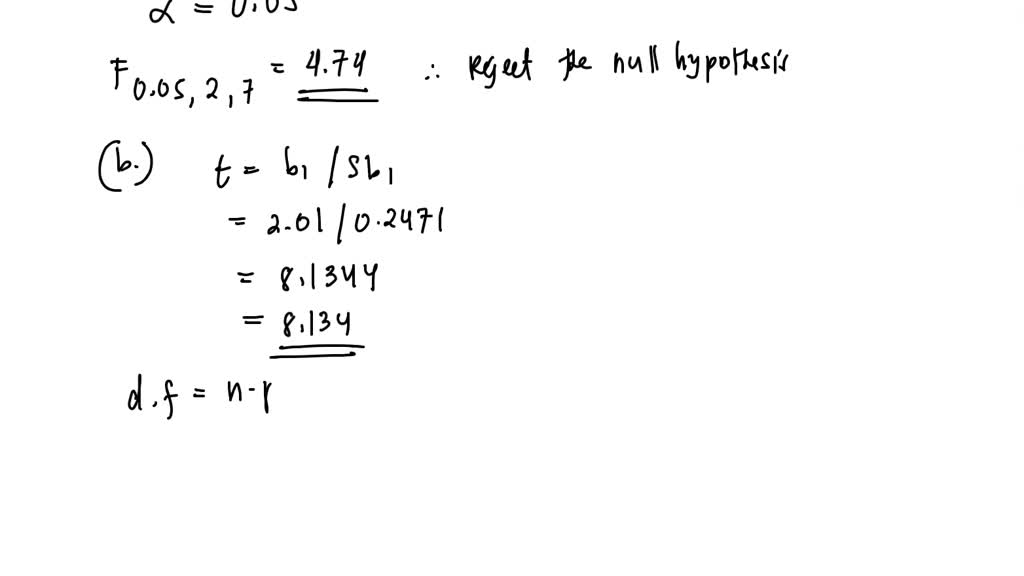 α = 0.05
F0.05, 2, 7 = 4.74 ∴ Reject the null hypothesis
(b.) t = b1 / Sb1
= 2.01 / 0.2471
= 8.1344
= 8.134
d.f = n-p